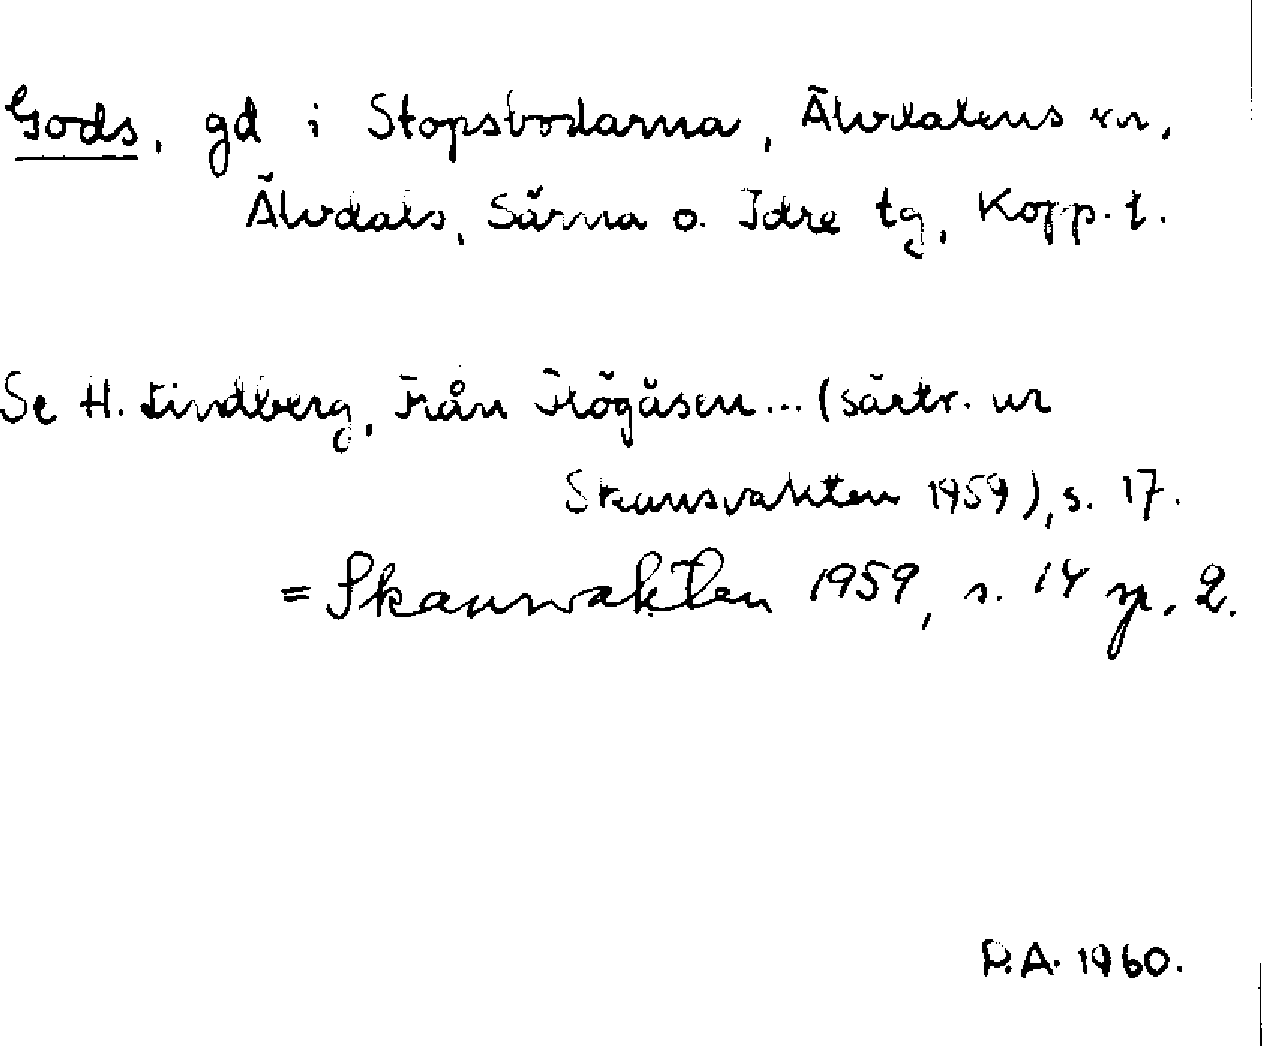 Gods, gd i Stopsbodarna, Älvdalens sn,
Älvdals, Särna o. Idre tg, Kopp. l.
Se H. Lindberg, Från Högåsen... (särtr. ur
Skansvakten 1959), s. 17.
= Skansvakten 1959, s. 14 sp. 2.
P.A. 1960.